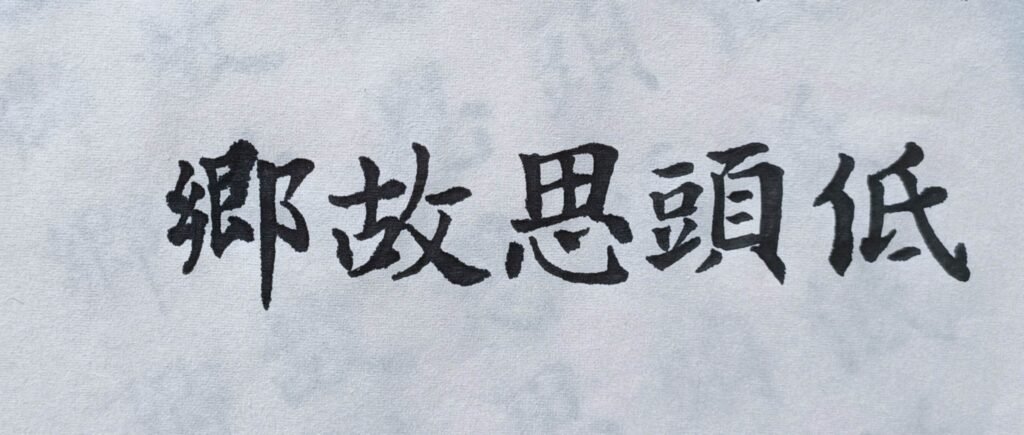 低頭思故鄉